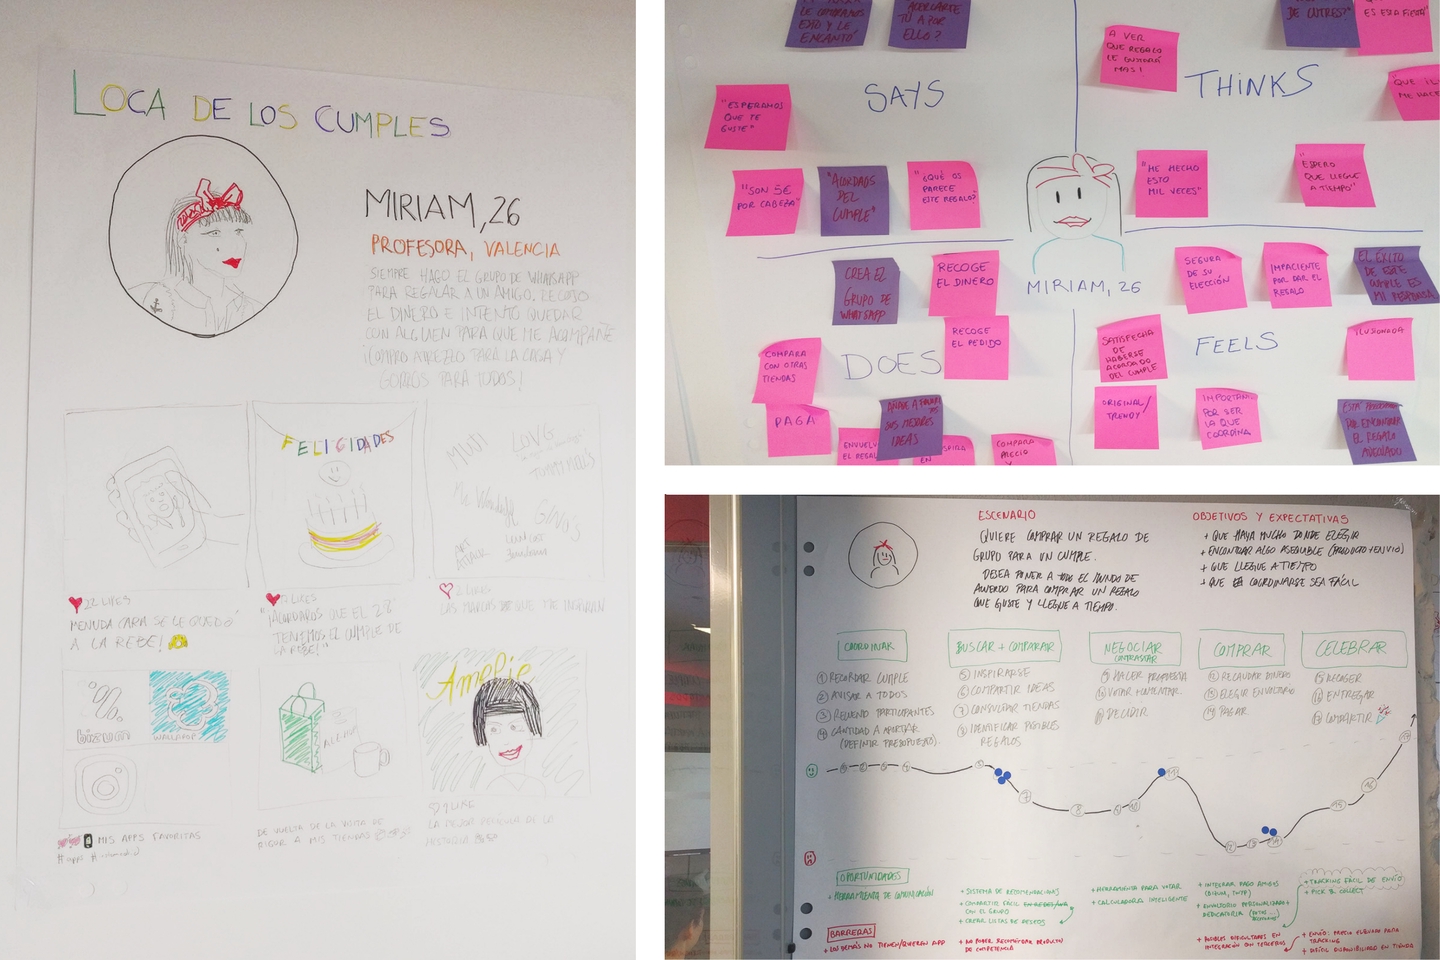 LOCA DE LOS CUMPLES
MIRIAM, 26
PROFESORA, VALENCIA
SIEMPRE HAGO EL GRUPO DE WHATSAPP
PARA REGALAR A UN AMIGO. RECOJO
EL DINERO E INTENTO QUEDAR
CON ALGUIEN PARA QUE ME ACOMPAÑE
¡COMPRO PARA LA CASA Y
GORROS PARA TODOS!
FELICIDADES
MUJI
GINOS
22 LIKES
MENUDA CARA SE LE QUEDÓ
A LA REBE!
LIKES
"¡ACORDAROS QUE EL 28
TENEMOS EL CUMPLE DE
LA REBE!"
2 LIKES
LAS MARCAS QUE ME INSPIRAN
bizum
WALLAPOP
MIS APPS FAVORITAS
DE VUELTA DE LA RUTA DE
RIGOR A MIS TIENDAS
Amelie
1 LIKE
LA MEJOR PELÍCULA DE LA
HISTORIA
SAYS
LE COMPRAMOS
ESTO Y LE
ENCANTÓ
ACERCARTE
TÚ A POR
ELLO?
"ESPERAMOS
QUE TE
GUSTE"
"SON 5€
POR CABEZA"
"ACORDAOS
DEL
CUMPLE"
"¿QUÉ OS
PARECE
ESTE REGALO?
THINKS
A VER
QUE REGALO
LE GUSTARÁ
MAS!
DE OTRES?"
ES ESTA FIESTA"
ME HACE
"HE HECHO
ESTO
MIL VECES"
"ESPERO
QUE LLEGUE
A TIEMPO"
MIRIAM, 26
DOES
CREA EL
GRUPO DE
WHATSAPP
RECOGE
EL DINERO
RECOGE
EL PEDIDO
COMPARA
CON OTRAS
TIENDAS
PAGA
SUS MEJORES
IDEAS
ENVUELVE
EL REGALO
EN
COMPARA
PRECIO
Y
FEELS
SEGURA
DE SU
ELECCIÓN
IMPACIENTE
POR DAR EL
REGALO
EL ÉXITO
DE ESTE
CUMPLE ES
MI
SATISFECHA
DE
HABERSE
ACORDADO
DEL CUMPLE
ILUSIONADA
ORIGINAL/
TRENDY
IMPORTAN.
POR SER
LA QUE
COORDINA
POR ENCONTRAR
EL REGALO
ADECUADO
ESCENARIO
QUIERE COMPRAR UN REGALO DE
GRUPO PARA UN CUMPLE.
DESEA PONER A TODO EL MUNDO DE
ACUERDO PARA COMPRAR UN REGALO
QUE GUSTE Y LLEGUE A TIEMPO.
OBJETIVOS Y EXPECTATIVAS
+ QUE HAYA MUCHO DONDE ELEGIR
+ ENCONTRAR ALGO ASEQUIBLE (PRODUCTO+ENVIO)
+ QUE LLEGUE A TIEMPO
+ QUE COORDINARSE SEA FÁCIL
COORDINAR
① RECORDAR CUMPLE
② AVISAR A TODOS
③ RECUENTO PARTICIPANTES
④ CANTIDAD A APORTAR
(DEFINIR PRESUPUESTO).
BUSCAR + COMPARAR
⑤ INSPIRARSE
⑥ COMPARTIR IDEAS
⑦ CONSULTAR TIENDAS
⑧ IDENTIFICAR POSIBLES
REGALOS
NEGOCIAR
CONTRASTAR
⑨ HACER PROPUESTA
⑩ VOTAR/COMENTAR
⑪ DECIDIR
COMPRAR
⑫ RECAUDAR DINERO
⑬ ELEGIR ENVOLTORIO
⑭ PAGAR
CELEBRAR
⑮ RECOGER
⑯ ENTREGAR
⑰ COMPARTIR
OPORTUNIDADES
+ HERRAMIENTA DE COMUNICACIÓN
+ SISTEMA DE RECOMENDACIONES
+ COMPARTIR FÁCIL
CON EL GRUPO
+ CREAR LISTAS DE DESEOS
+ HERRAMIENTA PARA VOTAR
+ CALCULADORA INTELIGENTE
+ INTEGRAR PAGO AMIGOS
+ ENVOLTORIO PERSONALIZADO+
DEDICATORIA
+ TRACKING FÁCIL DE ENVÍO
+ PICK & COLLECT
BARRERAS
+ LOS DEMÁS NO TIENEN/QUIEREN APP
+ NO PODER RECOMENDAR PRODUCTO
DE COMPETENCIA
+ POSIBLES DIFICULTADES EN
INTEGRACIÓN CON TERCEROS
+ ENVÍO: PRECIO ELEVADO PARA
TRACKING
+ DIFÍCIL DISPONIBILIDAD EN TIENDA